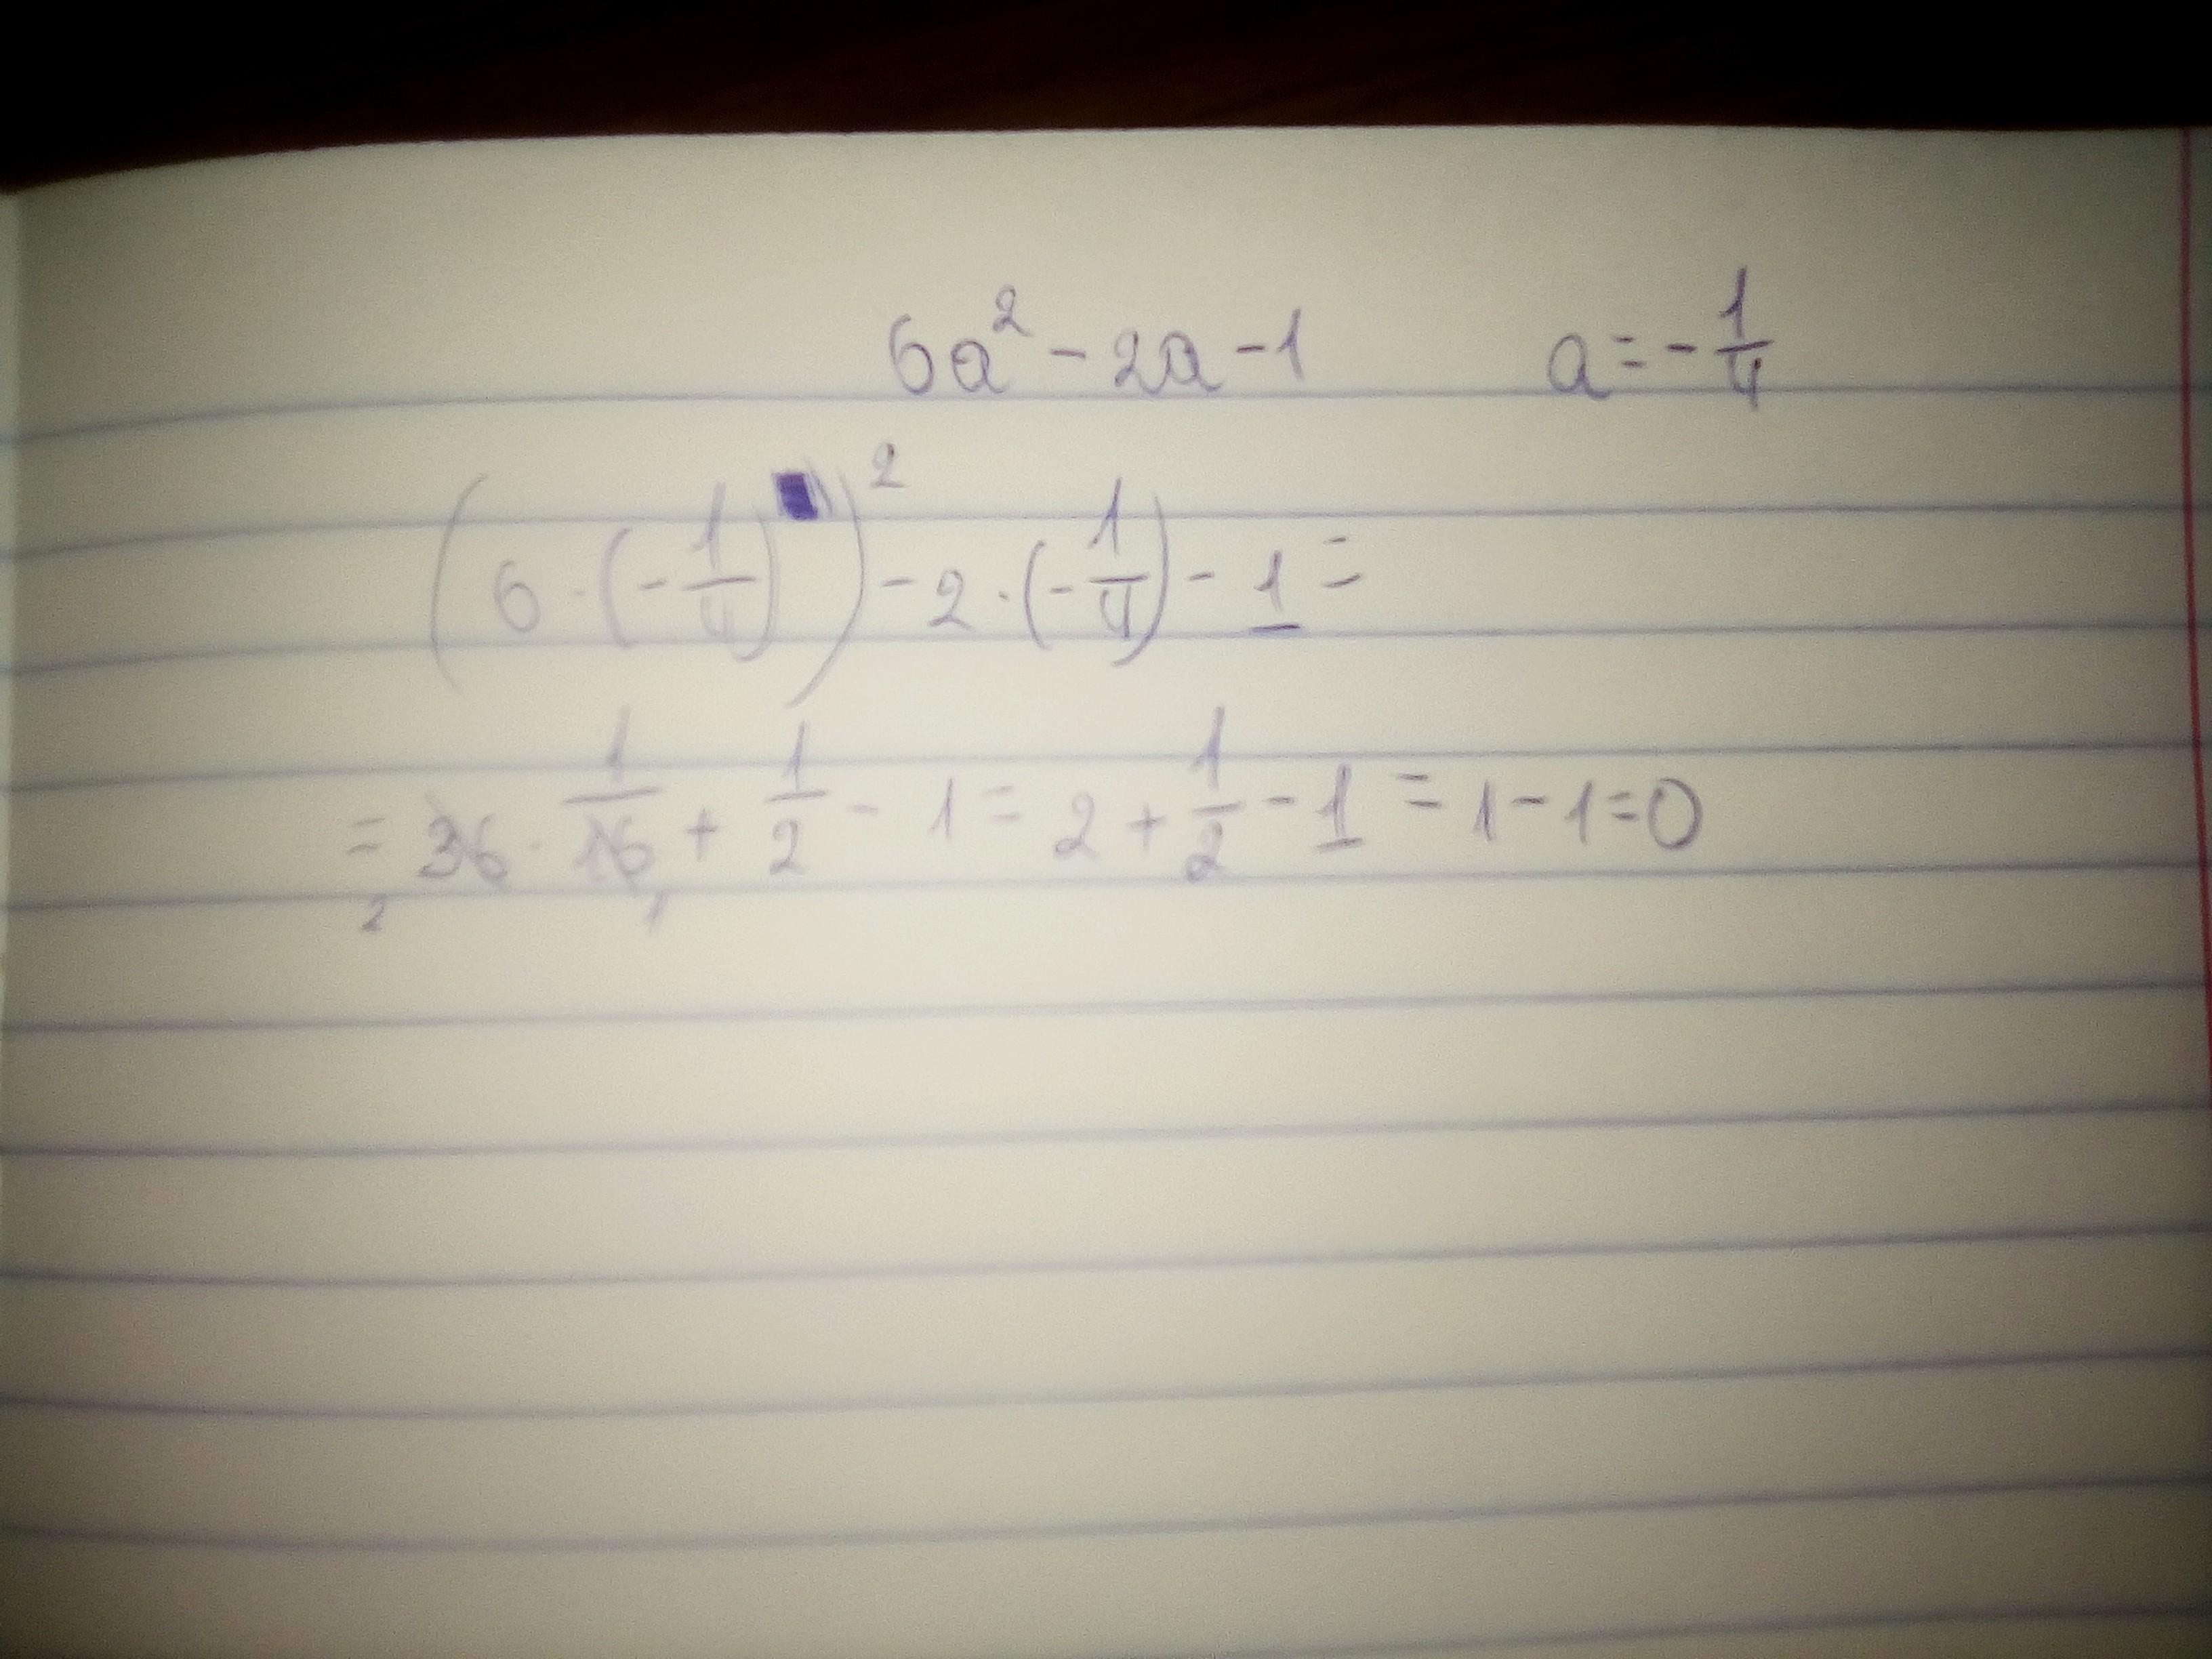 6a² - 2a - 1 a = - 1/4
(6 · (- 1/4))² - 2 · (- 1/4) - 1 =
= 36 · 1/16 + 1/2 - 1 = 2 + 1/2 - 1 = 1 - 1 = 0
2 1